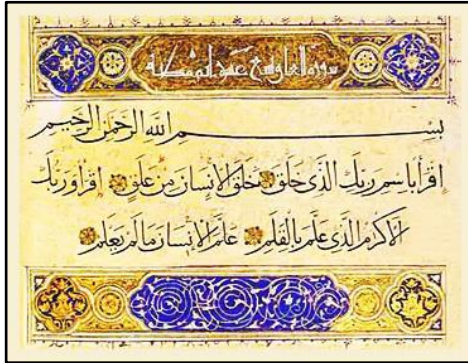 سورة العلق
بِسْمِ اللهِ الرَّحْمَٰنِ الرَّحِيمِ
اقرأ باسم ربك الذي خلق خلق الانسان من علق اقرأ وربك
الاكرم الذي علم بالقلم علم الانسان ما لم يعلم